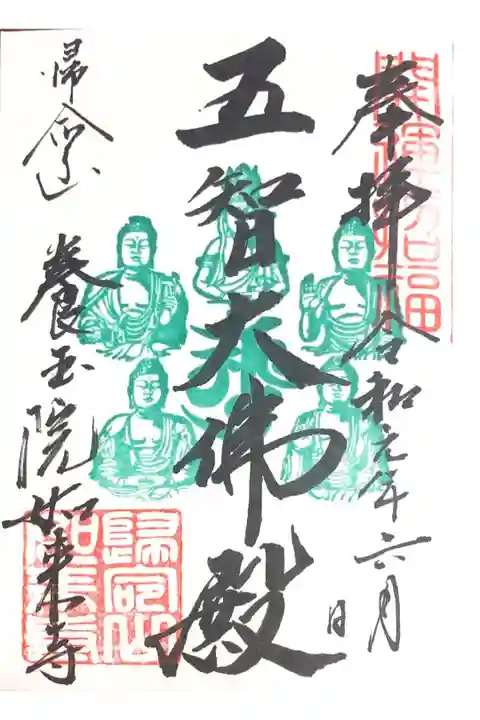 奉拝 令和元年六月 日
開運招福
五智大佛殿
帰命山 養玉院如来寺